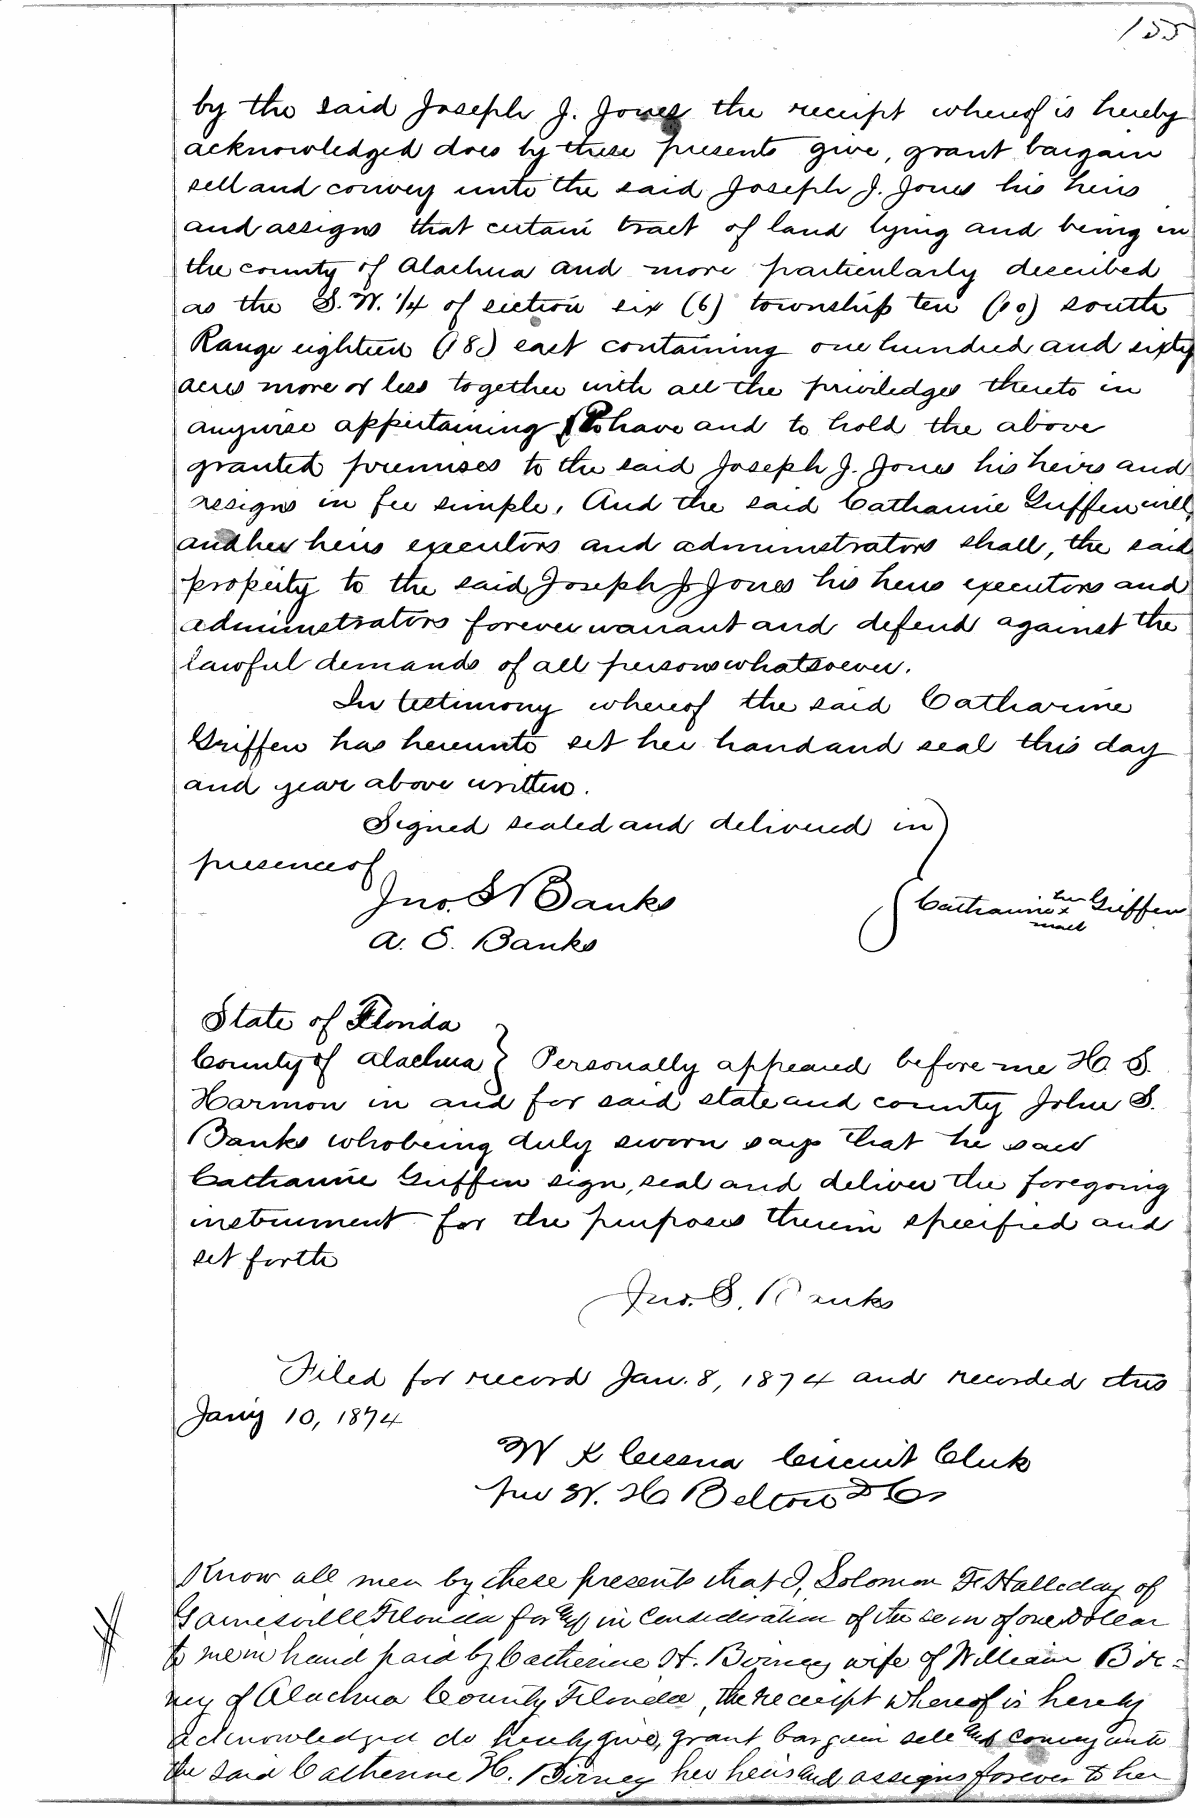 155
by the said Joseph J. Jones the receipt whereof is hereby
acknowledged does by these presents give, grant bargain
sell and convey unto the said Joseph J. Jones his heirs
and assigns that certain tract of land lying and being in
the county of Alachua and more particularly described
as the S.W. 1/4 of section six (6) township ten (10) south
Range eighteen (18) east containing one hundred and sixty
acres more or less together with all the priviledges thereto in
anywise appertaining, To have and to hold the above
granted premises to the said Joseph J. Jones his heirs and
assigns in fee simple, And the said Catharine Griffen will,
and her heirs executors and administrators shall, the said
property to the said Joseph J Jones his heirs executors and
administrators forever warrant and defend against the
lawful demands of all persons whatsoever.
In testimony whereof the said Catharine
Griffen has hereunto set her hand and seal this day
and year above written.
Signed sealed and delivered in
presence of
Jno. S Banks
Catharine her x mark Griffen
A. E. Banks
State of Florida
County of Alachua } Personally appeared before me H. S.
Harmon in and for said state and county John S.
Banks who being duly sworn says that he saw
Catharine Griffen sign, seal and deliver the foregoing
instrument for the purposes therein specified and
set forth
Jno. S. Banks
Filed for record Jan. 8, 1874 and recorded this
Jany 10, 1874
W K Cessna Circuit Clerk
per W. H. Belton D C
Know all men by these presents that I, Solomon F. Halleday of
Gainesville Florida for and in Consideration of the sum of one Dollar
to me in hand paid by Catherine H. Birney wife of William Bir=
ney of Alachua County Florida, the receipt whereof is hereby
acknowledged do hereby give, grant bargain sell and convey unto
the said Catherine H. Birney her heirs and assigns forever to her